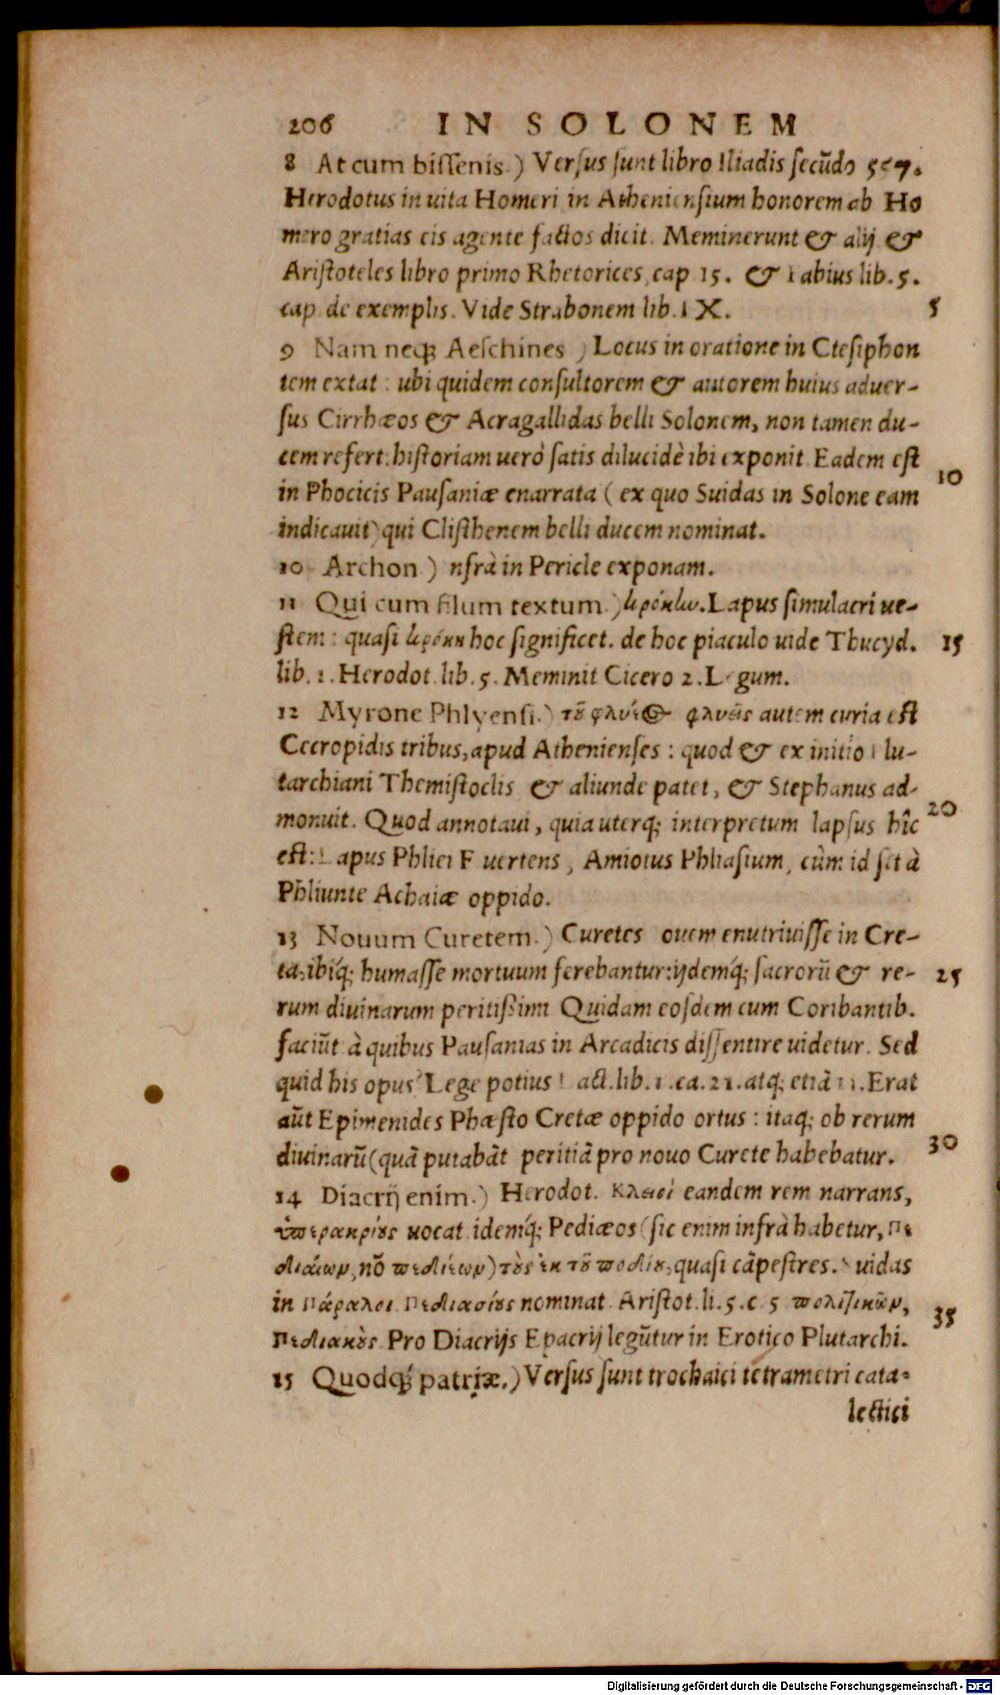 206 IN SOLONEM
8 At cum bissenis.) Versus sunt libro Iliadis secũdo 557.
Herodotus in uita Homeri in Atheniensium honorem ab Ho
mero gratias eis agente factos dicit. Meminerunt & alij &
Aristoteles libro primo Rhetorices, cap 15. & Fabius lib. 5.
cap de exemplis. Vide Strabonem lib. IX. 5
9 Nam neq; Aeschines.) Locus in oratione in Ctesiphon
tem extat: ubi quidem consultorem & autorem huius aduer-
sus Cirrhæos & Acragallidas belli Solonem, non tamen du-
cem refert: historiam uerò satis dilucidè ibi exponit Eadem est
in Phocicis Pausaniæ enarrata (ex quo Suidas in Solone eam 10
indicauit) qui Clisthenem belli ducem nominat.
10 Archon.) nfrà in Pericle exponam.
11 Qui cum filum textum.) κρόκίω. Lapus simulacri ue-
stem: quasi κρόκη hoc significet. de hoc piaculo uide Thucyd. 15
lib. 1. Herodot. lib. 5. Meminit Cicero 2. Legum.
12 Myrone Phlyensi.) τȣ̃ φλυέως φλυεῖς autem curia est
Cecropidis tribus, apud Athenienses: quod & ex initio Plu-
tarchiani Themistoclis & aliunde patet, & Stephanus ad-
monuit. Quod annotaui, quia uterq; interpretum lapsus hîc 20
est: Lapus Phliei F uertens, Amiotus Phliasium, cùm id sit à
Phliunte Achaiæ oppido.
13 Nouum Curetem.) Curetes Iouem enutriuisse in Cre-
ta, ibiq́; humasse mortuum ferebantur: ijdemq́; sacrorũ & re- 25
rum diuinarum peritißimi Quidam eosdem cum Coribantib.
faciũt à quibus Pausanias in Arcadicis dissentire uidetur. Sed
quid his opus? Lege potius Lact. lib. 1. ca. 21. atq; etiã 11. Erat
aũt Epimenides Phæsto Cretæ oppido ortus: itaq; ob rerum
diuinarũ (quã putabãt peritiã pro nouo Curete habebatur. 30
14 Diacrij enim.) Herodot. Κλειοῖ eandem rem narrans,
ὑπερακρίȣς uocat idemq́; Pediæos (sic enim infrà habetur, Πε
διαίων, nõ πεδιέων) τȣ̀ς ἐκ τȣ̃ πεδίȣ, quasi cãpestres. Suidas
in Πάραλοι Πεδιασίȣς nominat Aristot. li. 5. c 5 πολιτικῶν,
Πεδιακȣ̀ς. Pro Diacrijs Epacrij legũtur in Erotico Plutarchi. 35
15 Quodq́; patriæ.) Versus sunt trochaici tetrametri cata-
lectici
Digitalisierung gefördert durch die Deutsche Forschungsgemeinschaft - DFG